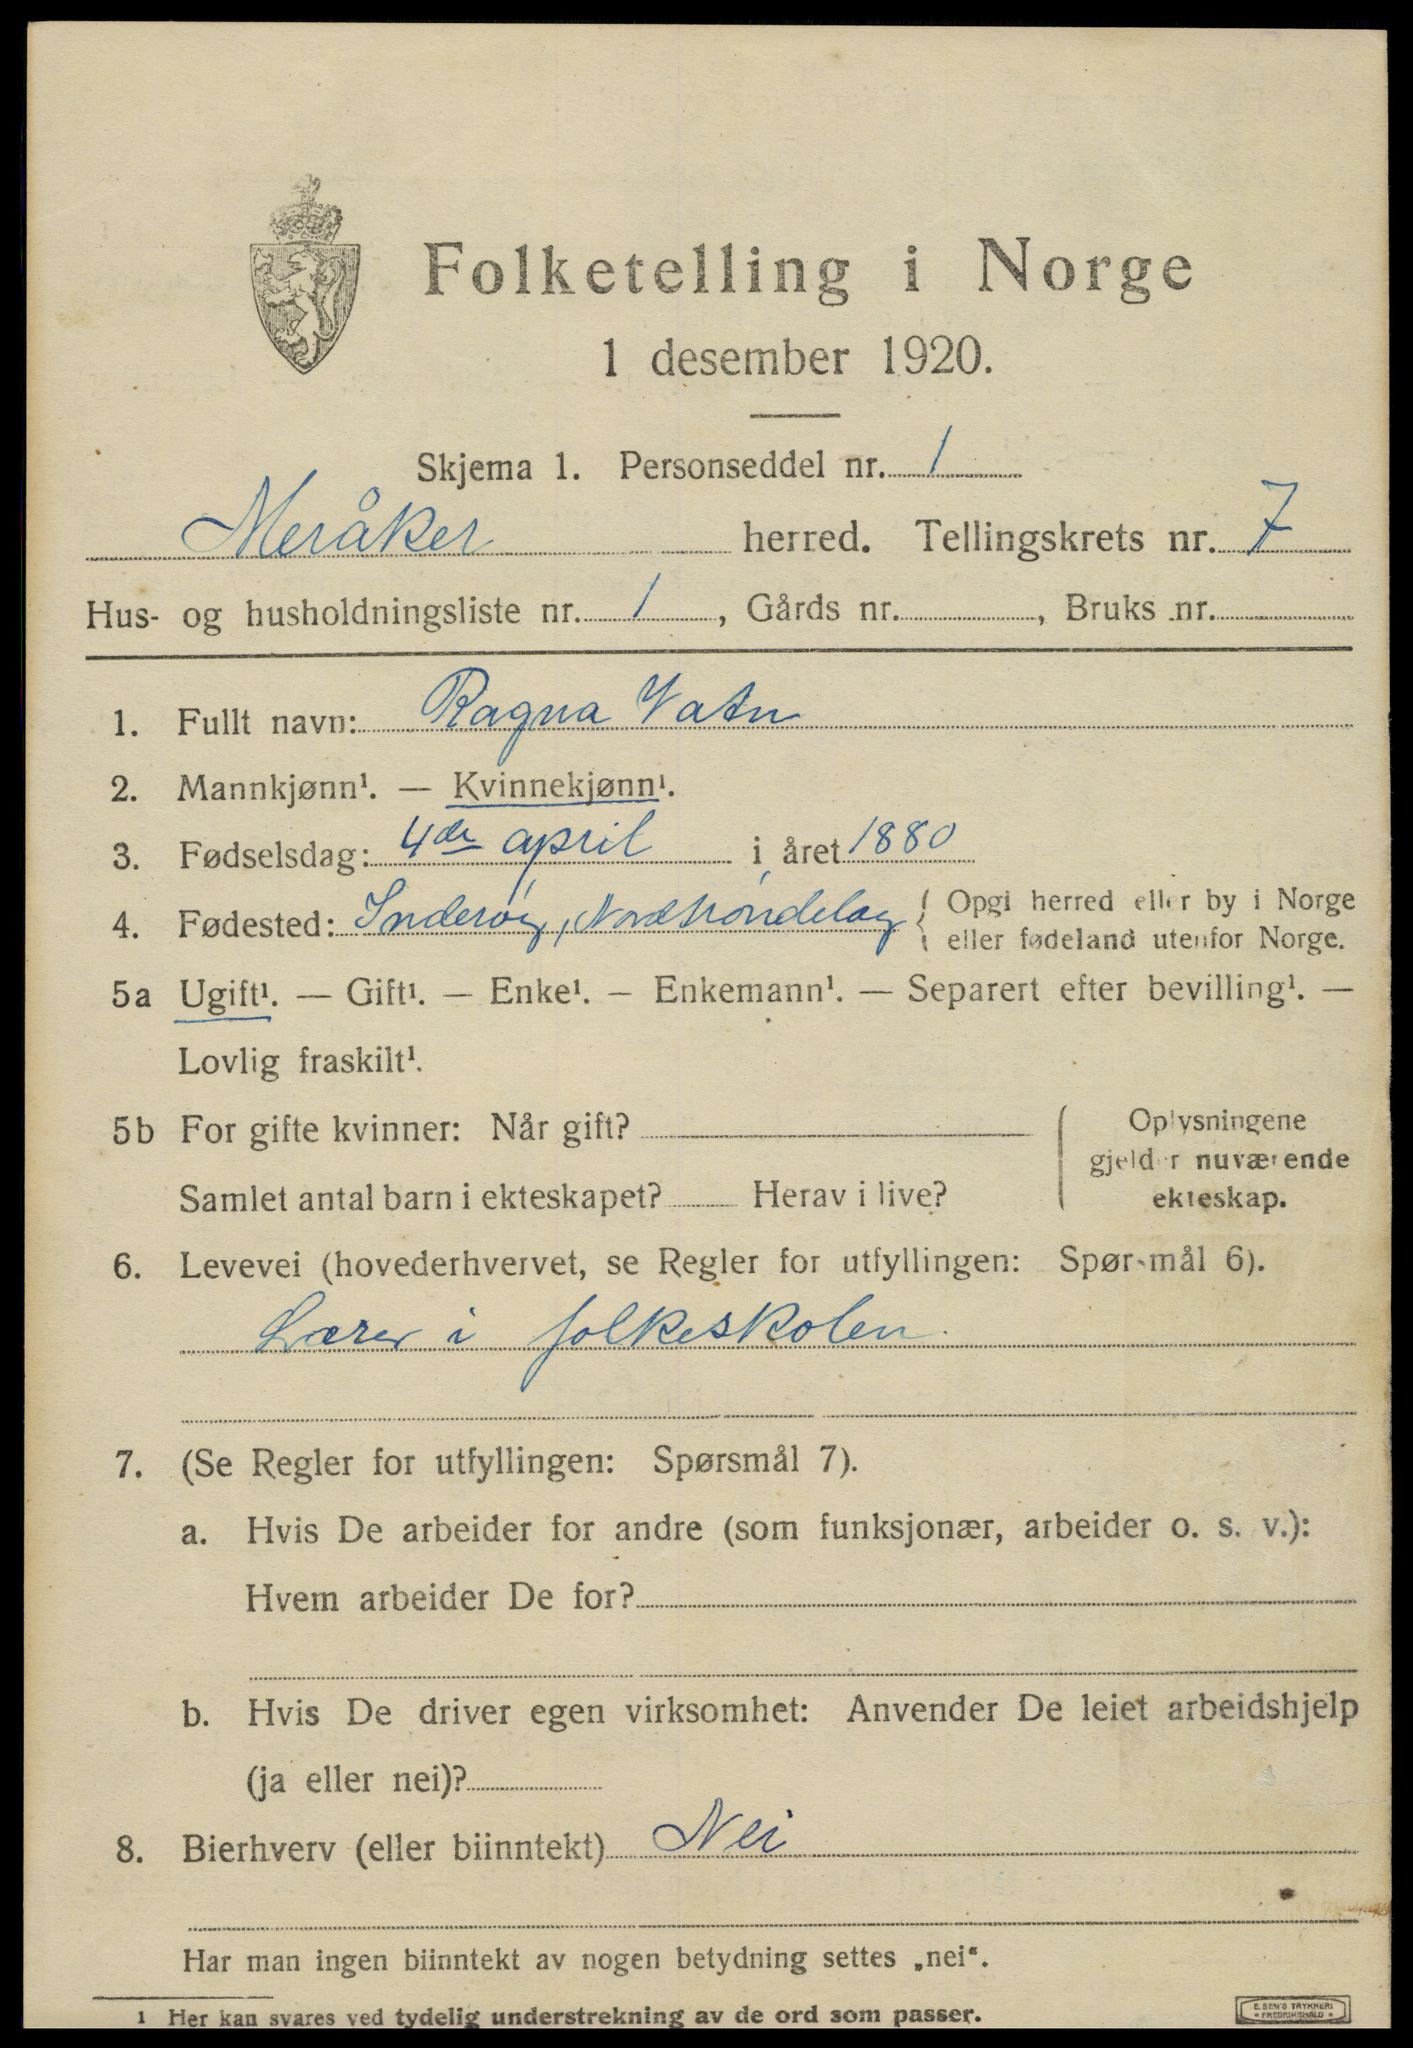 Folketelling i Norge
1 desember 1920.
Skjema 1. Personseddel nr. 1
Meråker herred. Tellingskrets nr. 7
Hus- og husholdningsliste nr. 1, Gårds nr. , Bruks nr.
1. Fullt navn: Ragna Vatn
2. Mannkjønn¹. — Kvinnekjønn¹.
3. Fødselsdag: 4de april i året 1880
4. Fødested: Inderøy, Nordtrøndelag { Opgi herred eller by i Norge
eller fødeland utenfor Norge.
5a Ugift¹. — Gift¹. — Enke¹. — Enkemann¹. — Separert efter bevilling¹. —
Lovlig fraskilt¹.
5b For gifte kvinner: Når gift? { Oplysningene
gjelder nuværende
Samlet antal barn i ekteskapet? Herav i live? ekteskap.
6. Levevei (hovederhvervet, se Regler for utfyllingen: Spørsmål 6).
Lærer i folkeskolen.
7. (Se Regler for utfyllingen: Spørsmål 7).
a. Hvis De arbeider for andre (som funksjonær, arbeider o. s. v.):
Hvem arbeider De for?
b. Hvis De driver egen virksomhet: Anvender De leiet arbeidshjelp
(ja eller nei)?
8. Bierhverv (eller biinntekt) Nei
Har man ingen biinntekt av nogen betydning settes „nei“.
1 Her kan svares ved tydelig understrekning av de ord som passer.
E. SEM'S TRYKKERI
• FREDRIKSHALD •